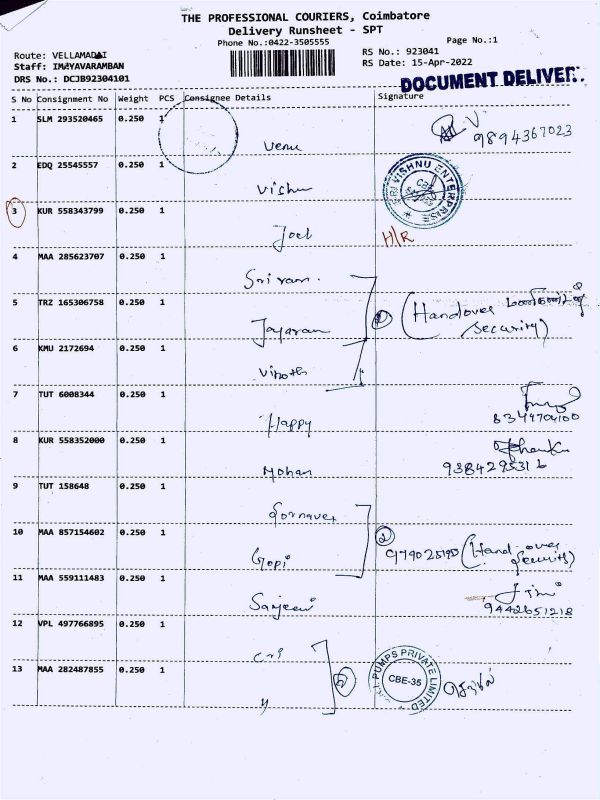 THE PROFESSIONAL COURIERS, Coimbatore
Delivery Runsheet - SPT
Phone No.:0422-3505555
Page No.:1
Route: VELLAMADAI
Staff: IMAYAVARAMBAN
DRS No.: DCJB92304101
RS No.: 923041
RS Date: 15-Apr-2022
DOCUMENT DELIVER
S No Consignment No Weight PCS Consignee Details Signature
1 SLM 293520465 0.250 1
Venu 9894367023
2 EDQ 25545557 0.250 1
Vishnu
SRI VISHNU ENTERPRISE
3 KUR 558343799 0.250 1
Joel H/R
4 MAA 285623707 0.250 1
Sriram.
5 TRZ 165306758 0.250 1
Jayaram (Handover
Security)
6 KMU 2172694 0.250 1
Vinoth
7 TUT 6008344 0.250 1
Happy 8344704100
8 KUR 558352000 0.250 1
Mohan 9384295316
9 TUT 158648 0.250 1
10 MAA 857154602 0.250 1
Gopi (Hand over
Security)
11 MAA 559111483 0.250 1
Sanjeevi
9442651218
12 VPL 497766895 0.250 1
cri
13 MAA 282487855 0.250 1
y 2
PUMPS PRIVATE LIMITED
CBE-35